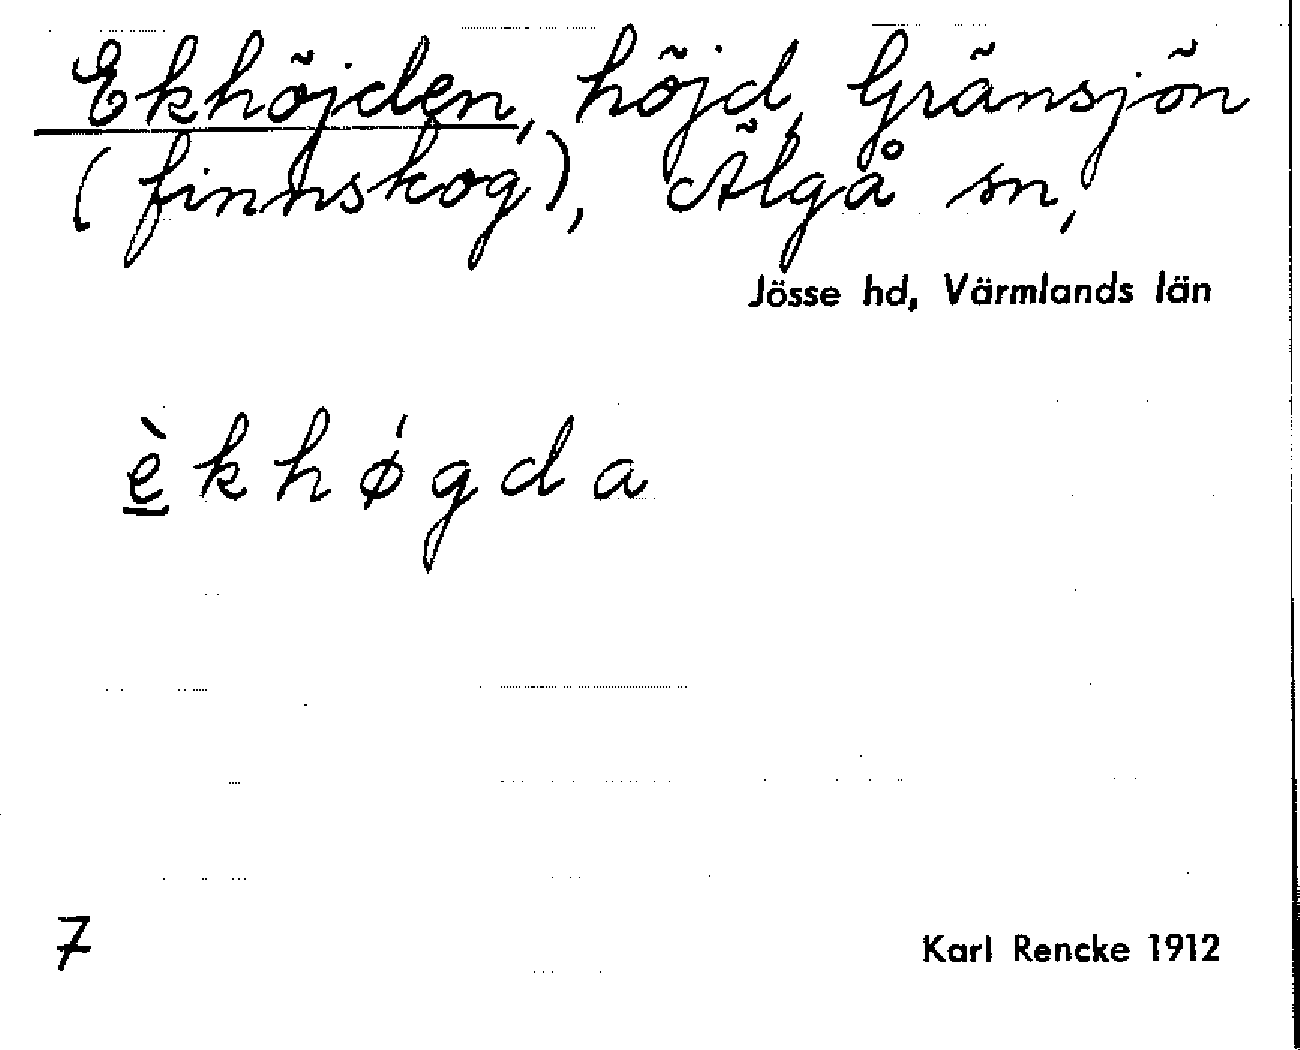 Ekhöjden, höjd, Gränsjön
(finnskog), Älgå sn,
Jösse hd, Värmlands län
è̲ k h ǿ g d a
7
Karl Rencke 1912